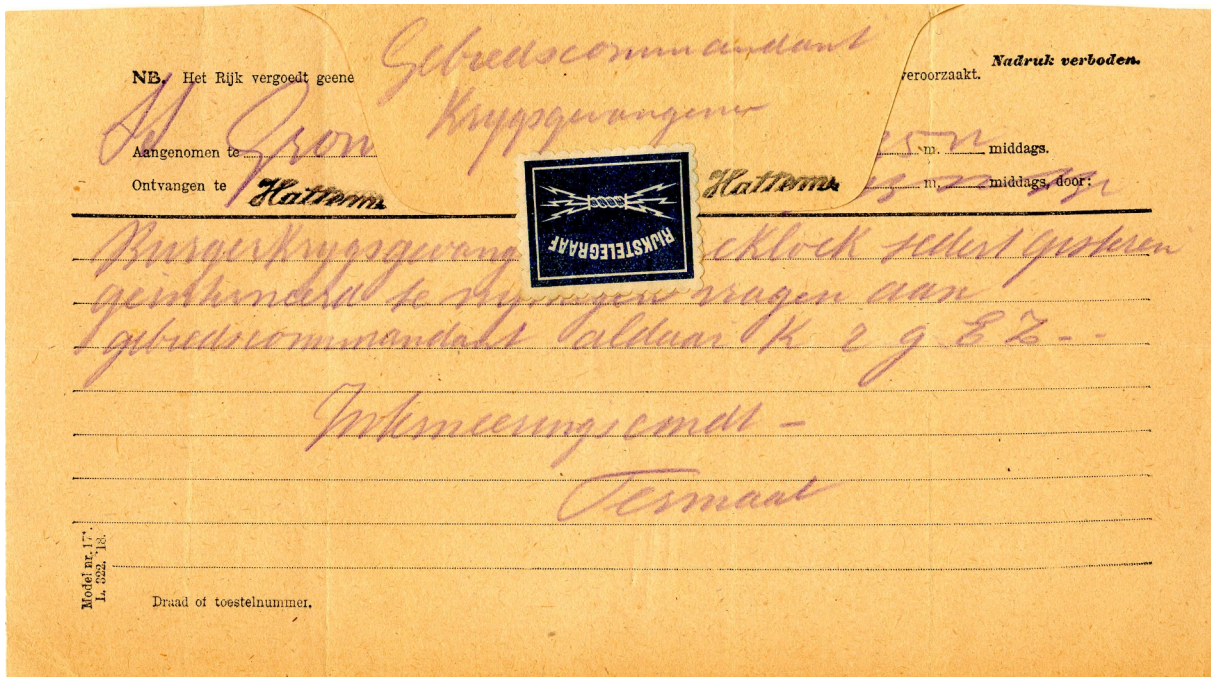 Gebiedscommandant
NB. Het Rijk vergoedt geene veroorzaakt. Nadruk verboden.
Krygsgevangenen
Aangenomen te Gron m. middags.
Ontvangen te Hattem Hattem m. middags, door:
RIJKSTELEGRAAF
Burgerkrygsgevang sedert gisteren
geinterneerd te vragen aan
gebiedscommandant aldaar K 2 g E Z - -
Interneeringscomdt -
Tesmaat
Model nr. 17
L. 322, '18.
Draad of toestelnummer.